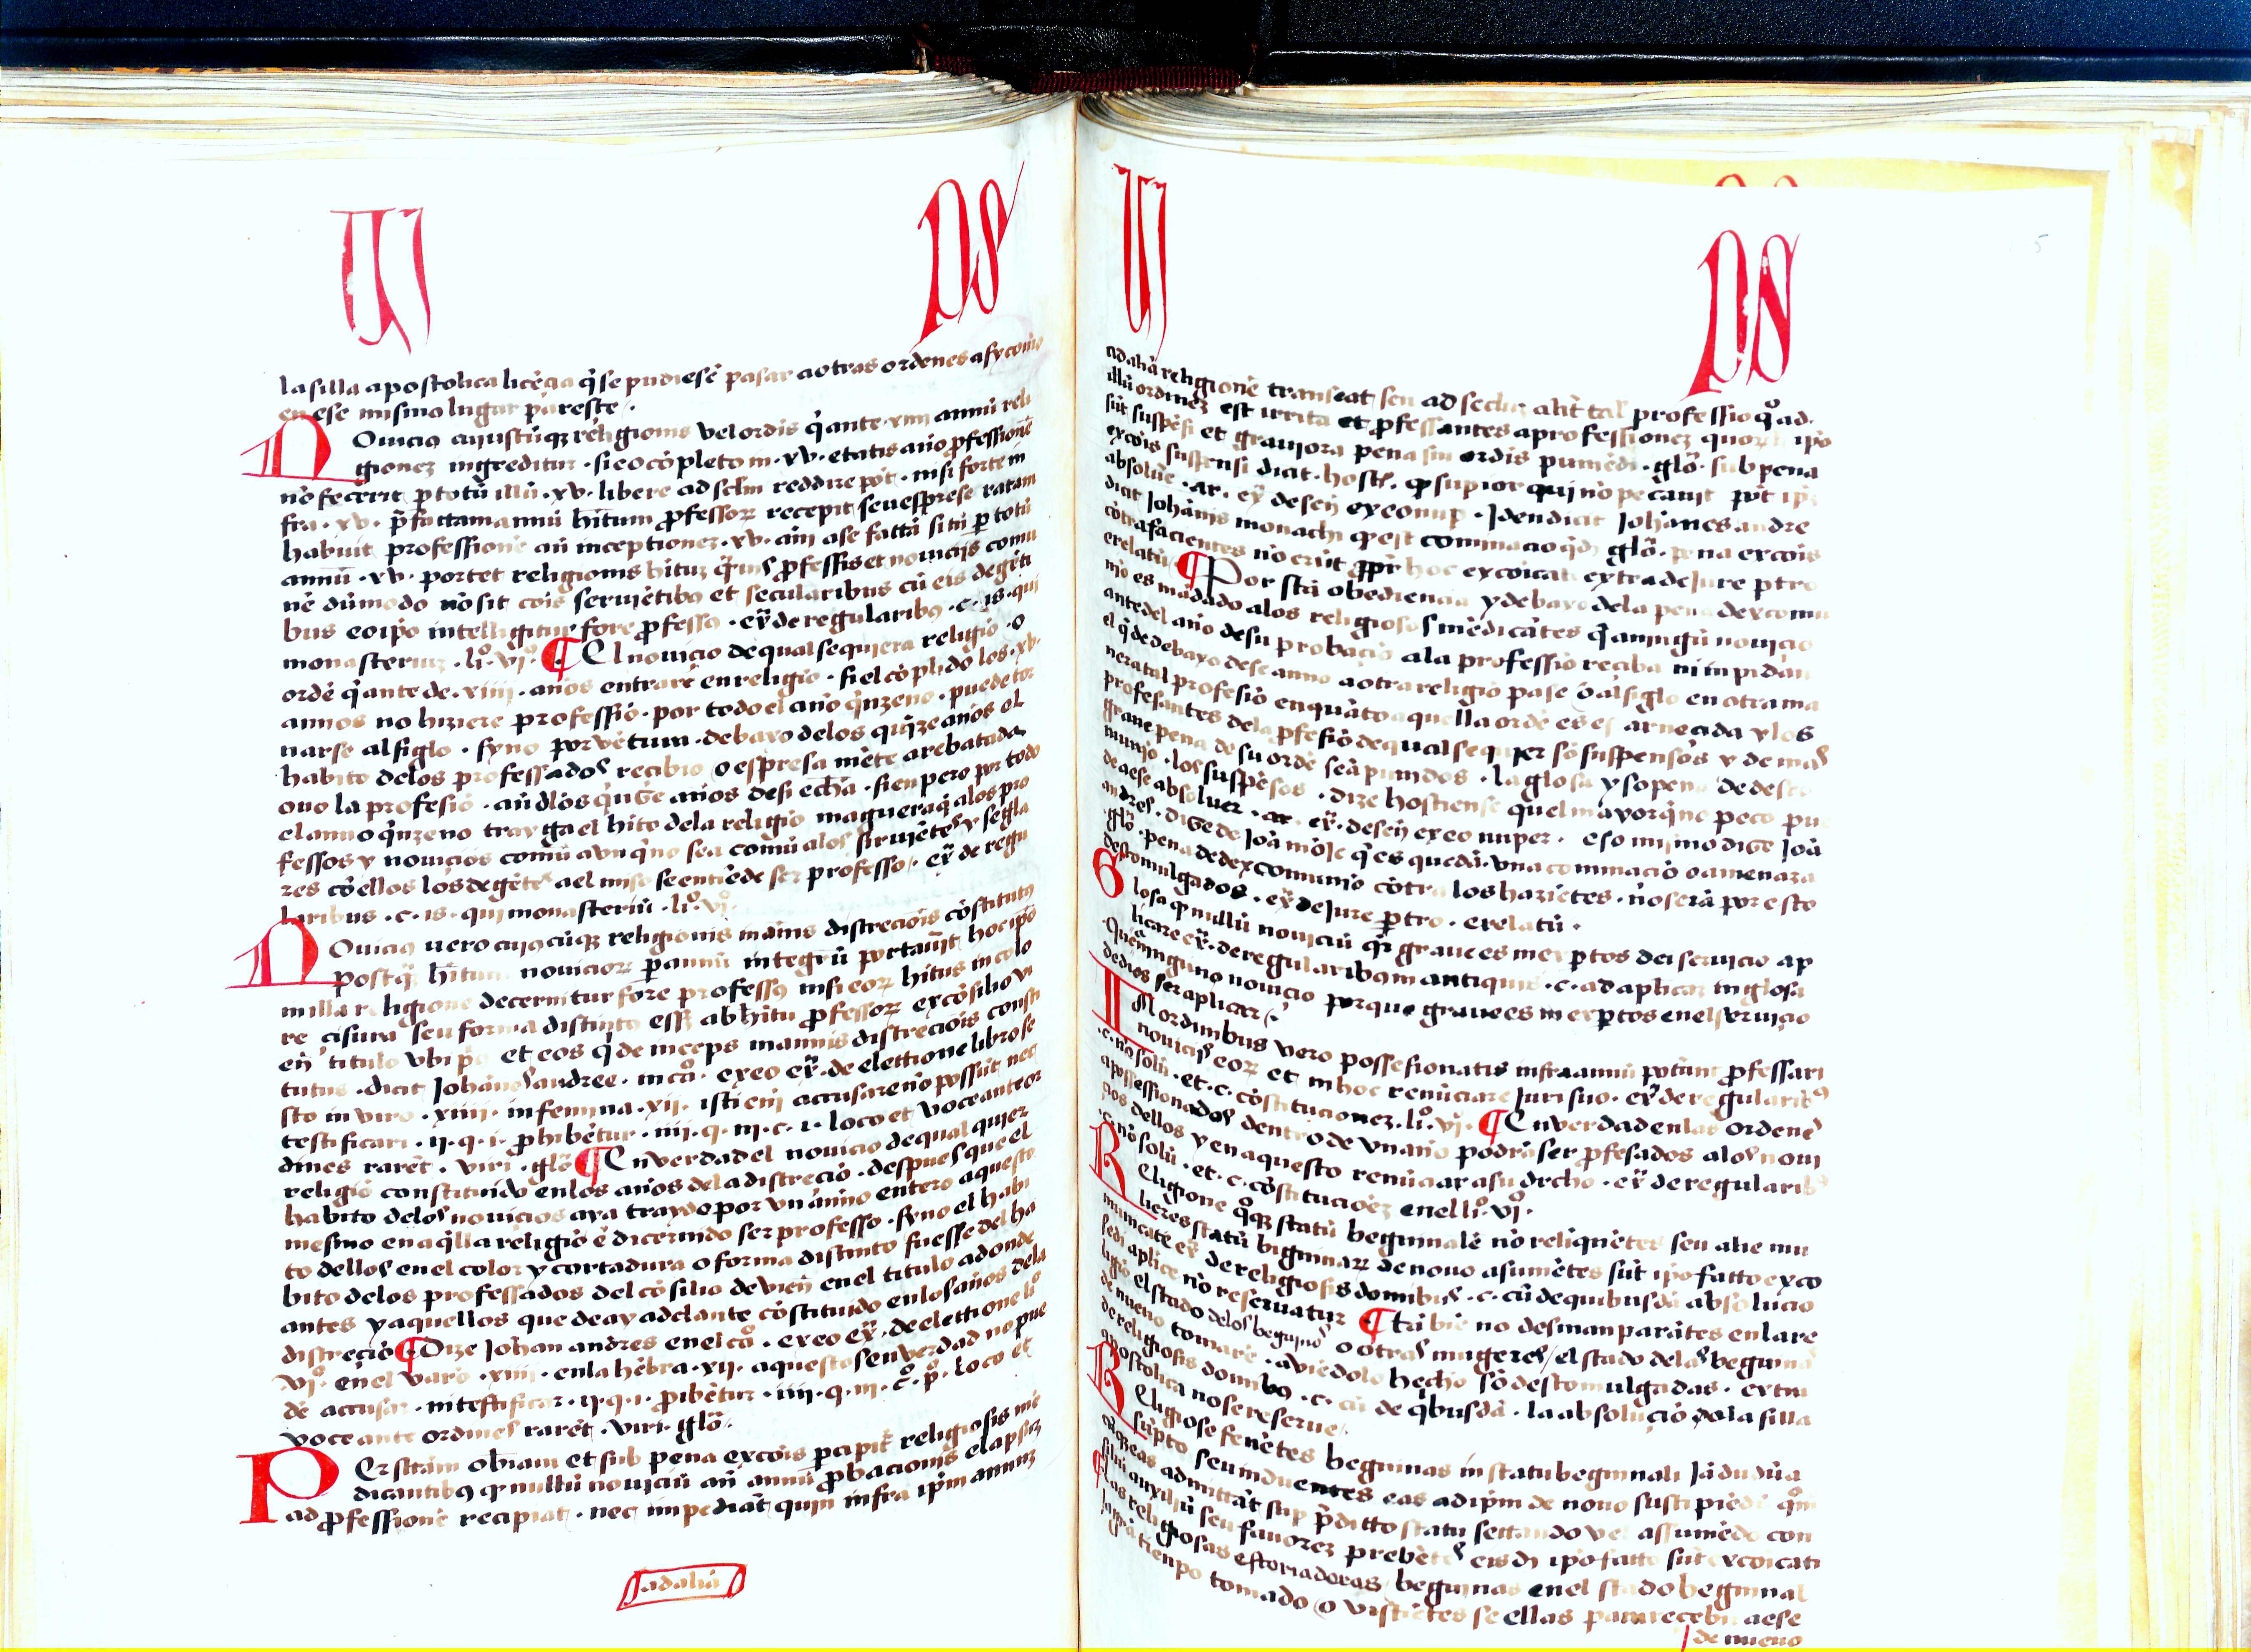 la silla apostolica licēçia q̄ se pudiesē pasar a otras ordenes asy como
en ese mismo lugar pareste.
NOuiciꝯ cuiustūqꝫ religionis vel ordīs q̄ ante xiiii annū reli
gionez ingreditur · si eo cōpleto in · xv · etatis año ꝓfessionē
nō fecerit ꝑ totū illū · xv · libere ad sclm reddire pōt · nisi forte in
fra · xv · p̄fattam annū h̄itum ꝓfessoꝝ recepit seu esprese ratam
habuit professionē añ inceptionez · xv · añ a se fattā si tñ ꝑ totū
annū · xv · portet religionis h̄ituz
nē dūmodo nō sit cōis seruiētibꝯ et secularibus cū eis degēti
bus eoip̄o intelligitur fore ꝓfessꝯ · ex̄ de regularibꝯ · c · is · qui
monasteriuz · li° · vi° · ¶ El nouicio de qual se quiera religio · o
ordē q̄ ante de · xiiii · años entrarē en religio · si el cōplido los · xv ·
annos no hiziere professiō · por todo el año q̄nzeno · puede tor
narse al siglo · syno por vētura · debaxo delos quīze años el
habito delos professados recibio / o espresa mēte arebatada
ouo la profesiō · añ dlos q̄nze años desi echa · sienpero por todo
el anno q̄nzeno trayga el h̄ito dela religiō maguera q̄ a los pro
fessos y nouicios comū avn q̄ no sea comū alos siruiētes y segla
res cō ellos los degētes ael miso se entiēde ser professo / · ex̄ de regu
laribus · c · is · qui monasteriū · li° · vi° ·
NOuiciꝯ uero cuiꝯcūqꝫ religionis in añis distrecōis cōstitutꝯ
postq̄ h̄itum nouicioꝝ ꝑ annū integrū portauit hoc ip̄o
in illa religione decernitur fore professꝯ nisi eoꝝ h̄itus in colo
re cisura seu forma distinto essz ab h̄itu ꝓfessoꝝ ex cōsilio vi
eñ titulo vbi p̄ et eos q̄ de inceps in annis distrecōis consti
tutus · dicit Johānes andree · in c° · ex eo ex̄ · de elettione libro se
sto in viro · xiiii · in femina · xii · isti eni accusare nō possūt nec
testificari · ii · q · i · ꝓhibētur · iiii · q · iii · c · i · loco et voce ante or
dines rarēt · viri · glō ¶ En verdad el nouicio de qual quier
religiō constituido en los años dela distreciō · despues que el
habito delos nouicios aya traydo por vn anno entero aquesto
mesmo en aq̄lla religiō ē dicernido ser professo · syno el habi
to dellos en el color y cortadura o forma distinto fuesse del ha
bito delos professados del cōsilio de vien en el titulo adonde
antes y aquellos que de ay adelante cōstituido en los años dela
distreciō ¶ Dize Johan andres en el c° · ex eo ex̄ · de elettione li°
vi° · en el varō · xiiii · en la hēbra · xii · aquestos en verdad no pue
dē accusar · ni testificar · ii · q · i · ꝓibētur · iiii · q · iii · c° · p° · loco et
voce ante ordines rarēt · viri · glō ·
PEr strām obnam et sub pena excōis precipit̄ religiosis mē
dicantibꝯ ꝙ nullū nouiciū añ annū ꝓbacionis elapsuz
ad ꝓfessionē recipiat · nec impediāt quin infra ip̄m annuz
ad aliā
ad aliā religionē transeat seu ad seclūz alīt tal professio q° ad ·
illū ordinez est irrita et ꝓfessantes a professionez ip̄o
sūt suspēsi et grauiora pena sui ordīs puniēdi · glō · sub pena
excōis suspensi dicit · host̄ · ꝙ supior qui nō pecauit pōt ip̄s
absolue · ar · ex̄ de señ ex eo nup · Jden dicit Johānes andre
dicit Johānis monachi ꝙ est comminacio glō · pena excōis
cōtrafacientes nō erūt ꝓpr hoc excoīcati extra de Jure ptro
erelatū ¶ Por stā obediencia y debaxo dela pena dexcomu
niō es mādado alos religiosos mēdicātes q̄ a ningū nouicio
ante del año de su probaciō ala professiō reciba ni inpidan
el q̄ de debaxo dese anno a otra religiō pase o al siglo en otra ma
nera tal profesiō en quāto aquella ordē es es arnecida y los
profesantes dela ꝓfesiō de qual se quier sō suspensos y de mas
graue pena de su ordē seā punidos · la glosa y so pena de desco
muniō · los suspēsos · dize hostiense quel mayor q̄ no peco pue
de aese absoluer · ar · ex̄ · de señ ex eo nuper · eso mimo dize Joā
andres · dize de Joā mōJe q̄ es quedā · vna cominaciō o amenaza
glō · pena dedexcomuniō cōtra los haziētes · no serā por esto
descomulgados · ex̄ de Jure ꝑtro · erelatū ·
Glosa ꝙ nullū nouiciū q̄ graues merptos dei seruicio ap
licare ex̄ · de regularibꝯ in antiquis · c · ad aplicaꝫ in glosa
· Que a ninguno nouicio porque graues merptos en el seruicio
de dios ser aplicar / ·
IN ordinibus vero possesionatis infra annū potūnt ꝓfessari
nouicij eoꝝ et in hoc renūciare Juri suo · ex̄ de regularibꝯ
· c · nō solū · et · c · cōstitucionez · li° · vi° · ¶ En verdad en las ordenes
apossessionados dentro de vn año podrā ser ꝓfesados alos noui
cios dellos y en aquesto renūciar a su drcho · ex̄ de regularibꝯ
· c · nō solū · et · c · cōstitucioēz en el li° · vi° ·
REligione q°qꝫ statū beguinalē nō reliquētes seu alie mu
lieres statū biguinaꝝ de nouo asumētes sūt ip̄o fatto exco
municate ex̄ de religiosis domibus · c · cū de quibusdā absolucio
sedi aplice nō reseruatur ¶ Tābiē no desmanparātes en la re
ligiō el stado delos beguinos o otras mugeres / el stado delas beguinas
de nueuo tomarē · aviēdolo hecho sō descomulgadas · extra
de religiosis domibꝯ · c · cū de q̄busdā · la absoluciō dela silla
apostolica no se reserue / ·
REligiose fenētes beguinas in statu beguinali Jādudū a
sūpto seu induentes eas ad ip̄m de nouo suscipiēdū q°m
admittāt sup p̄ditto statu settando vel assumēdo con
siliū auxiliū seu fauorez prebētes eisdz ip̄o fatto sūt excoīcati
¶ Las religiosas estoriadoras beguinas en el stado beguinal
tienpo tomado / o vistiētes se ellas para recebir aese
de nueuo